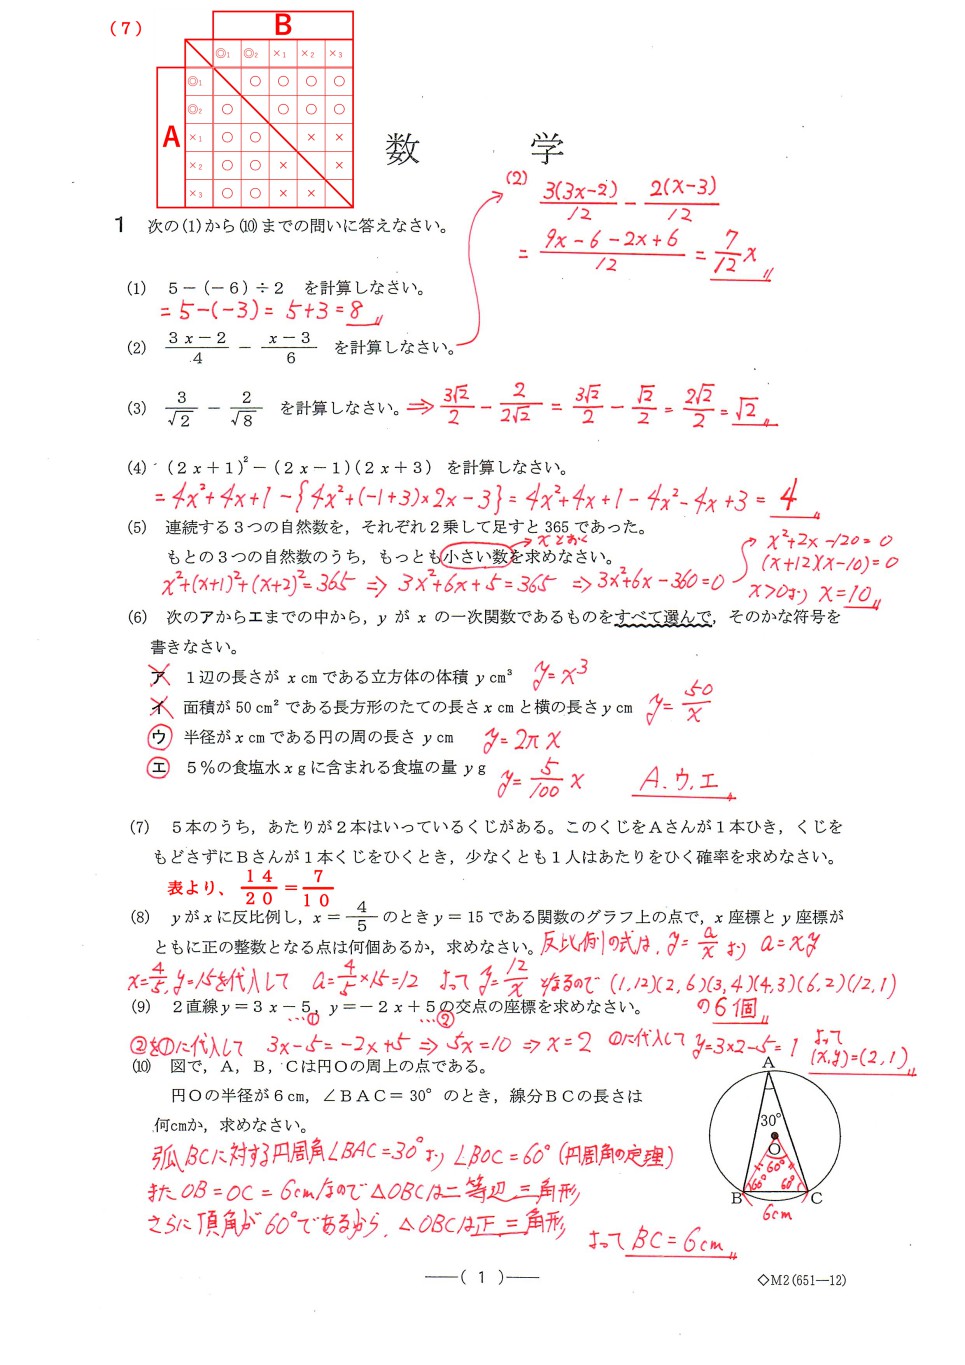 (7)
B
◎1 ◎2 ×1 ×2 ×3
◎1 ○ ○ ○ ○
◎2 ○ ○ ○ ○
A
×1 ○ ○ × ×
×2 ○ ○ × ×
×3 ○ ○ × ×
数 学
(2) 3(3x-2)/12 - 2(x-3)/12
= (9x-6-2x+6)/12 = 7/12 x
1 次の(1)から(10)までの問いに答えなさい。
(1) 5-(-6)÷2 を計算しなさい。
=5-(-3)=5+3=8
(2) (3x-2)/4 - (x-3)/6 を計算しなさい。
(3) 3/√2 - 2/√8 を計算しなさい。⇒ 3√2/2 - 2/2√2 = 3√2/2 - √2/2 = 2√2/2 = √2
(4) (2x+1)²-(2x-1)(2x+3) を計算しなさい。
=4x²+4x+1-{4x²+(-1+3)×2x-3}=4x²+4x+1-4x²-4x+3=4
(5) 連続する3つの自然数を,それぞれ2乗して足すと365であった。
→xとおく
もとの3つの自然数のうち,もっとも小さい数を求めなさい。
x²+(x+1)²+(x+2)²=365 ⇒ 3x²+6x+5=365 ⇒ 3x²+6x-360=0
x²+2x-120=0
(x+12)(x-10)=0
x>0より x=10
(6) 次のアからエまでの中から,yがxの一次関数であるものをすべて選んで,そのかな符号を
書きなさい。
ア 1辺の長さがxcmである立方体の体積ycm³ y=x³
イ 面積が50cm²である長方形のたての長さxcmと横の長さycm y=50/x
ウ 半径がxcmである円の周の長さycm y=2πx
エ 5%の食塩水xgに含まれる食塩の量yg y=5/100 x A.ウ,エ
(7) 5本のうち,あたりが2本はいっているくじがある。このくじをAさんが1本ひき,くじを
もどさずにBさんが1本くじをひくとき,少なくとも1人はあたりをひく確率を求めなさい。
表より、14/20=7/10
(8) yがxに反比例し,x=4/5のときy=15である関数のグラフ上の点で,x座標とy座標が
ともに正の整数となる点は何個あるか,求めなさい。反比例の式は、y=a/xより a=xy
x=4/5,y=15を代入して a=4/5×15=12 よってy=12/xなるので(1,12)(2,6)(3,4)(4,3)(6,2)(12,1)
の6個
(9) 2直線y=3x-5,y=-2x+5の交点の座標を求めなさい。
…① …②
②を①に代入して 3x-5=-2x+5⇒5x=10⇒x=2 ①に代入してy=3×2-5=1 よって
(x,y)=(2,1)
(10) 図で,A,B,Cは円Oの周上の点である。
円Oの半径が6cm,∠BAC=30°のとき,線分BCの長さは
何cmか,求めなさい。
弧BCに対する円周角∠BAC=30°より ∠BOC=60°(円周角の定理)
また OB=OC=6cmなので△OBCは二等辺三角形
さらに頂角が60°であるから、△OBCは正三角形
よってBC=6cm
A
30°
O
60°
60° 60°
B C
6cm
—( 1 )—
◇M2(651—12)